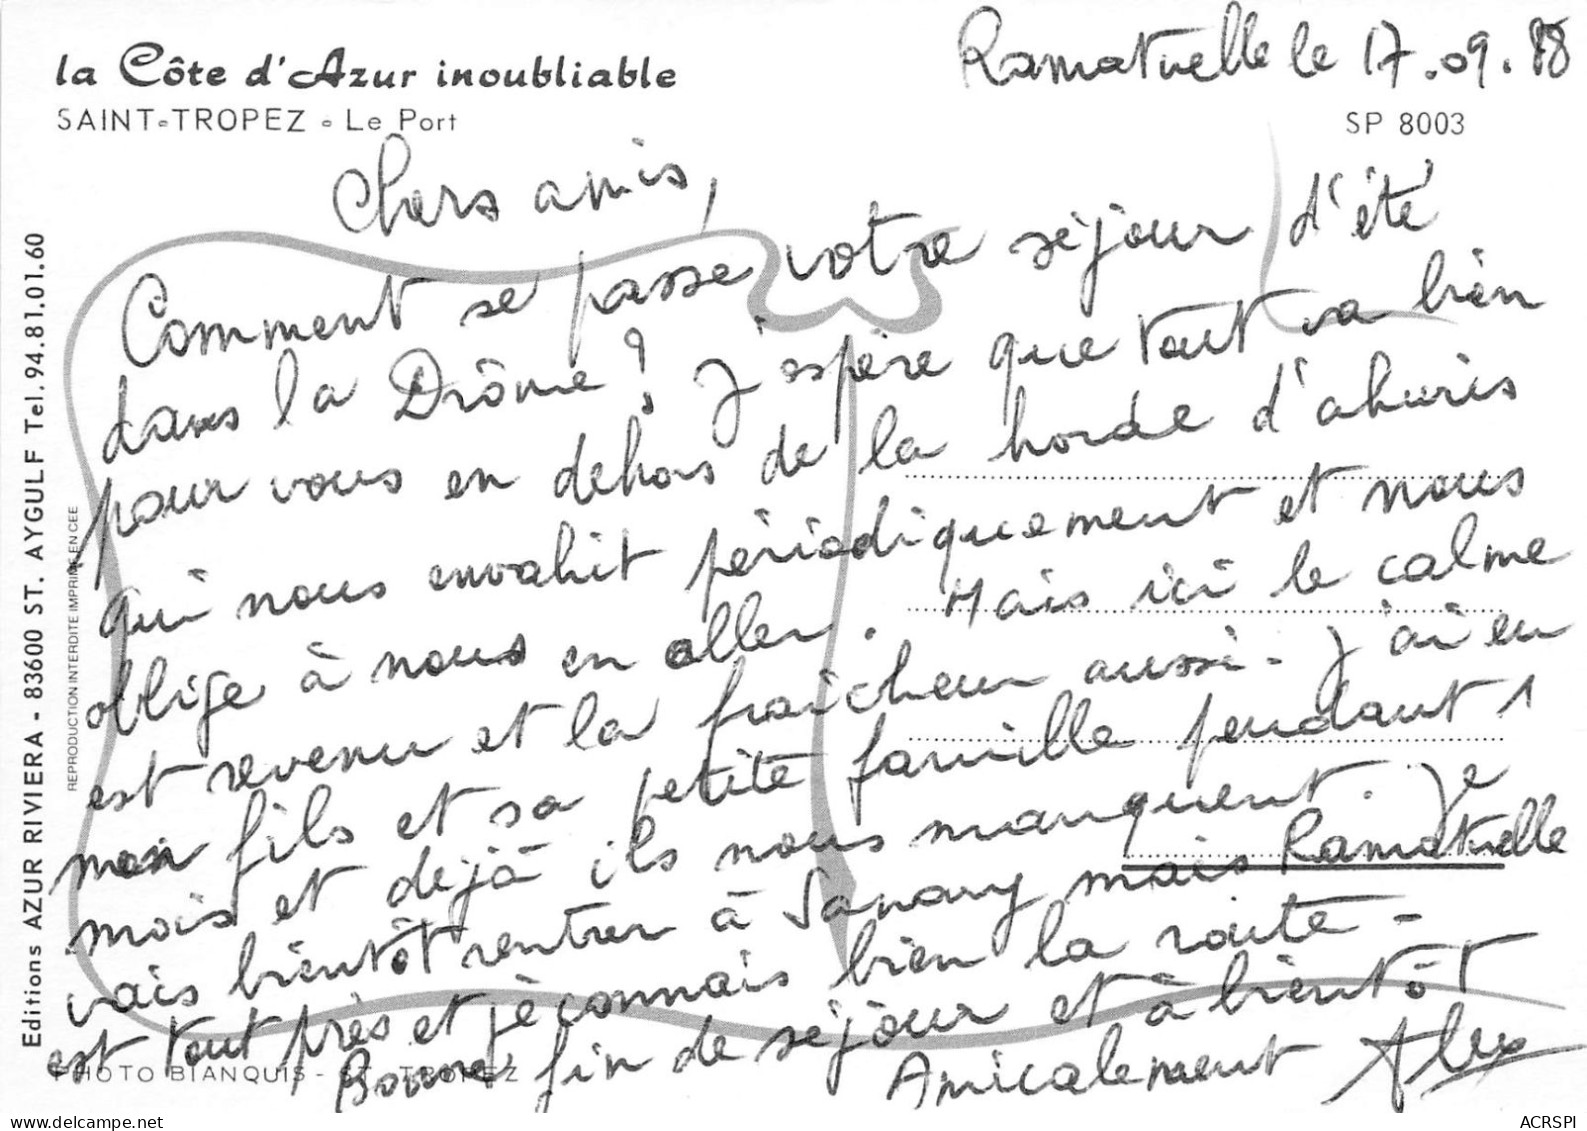 Ramatuelle le 17.09.88
la Côte d'Azur inoubliable
SAINT-TROPEZ - Le Port
SP 8003
Chers amis,
Comment se passe votre séjour d'été
dans la Drôme ? J'espère que tout va bien
pour vous en dehors de la horde d'ahuris
qui nous envahit périodiquement et nous
oblige à nous en aller. Mais ici le calme
est revenu et la fraîcheur aussi. J'ai eu
mon fils et sa petite famille pendant 1
mois et déjà ils nous manquent. Je
vais bientôt rentrer à Sanary mais Ramatuelle
est tout près et je connais bien la route -
Bonne fin de séjour et à bientôt
Amicalement Alex
Editions AZUR RIVIERA - 83600 ST. AYGULF Tel. 94.81.01.60
REPRODUCTION INTERDITE IMPRIMÉ EN CEE
PHOTO BIANQUIS - ST. TROPEZ
delcampe.net
ACRSPI